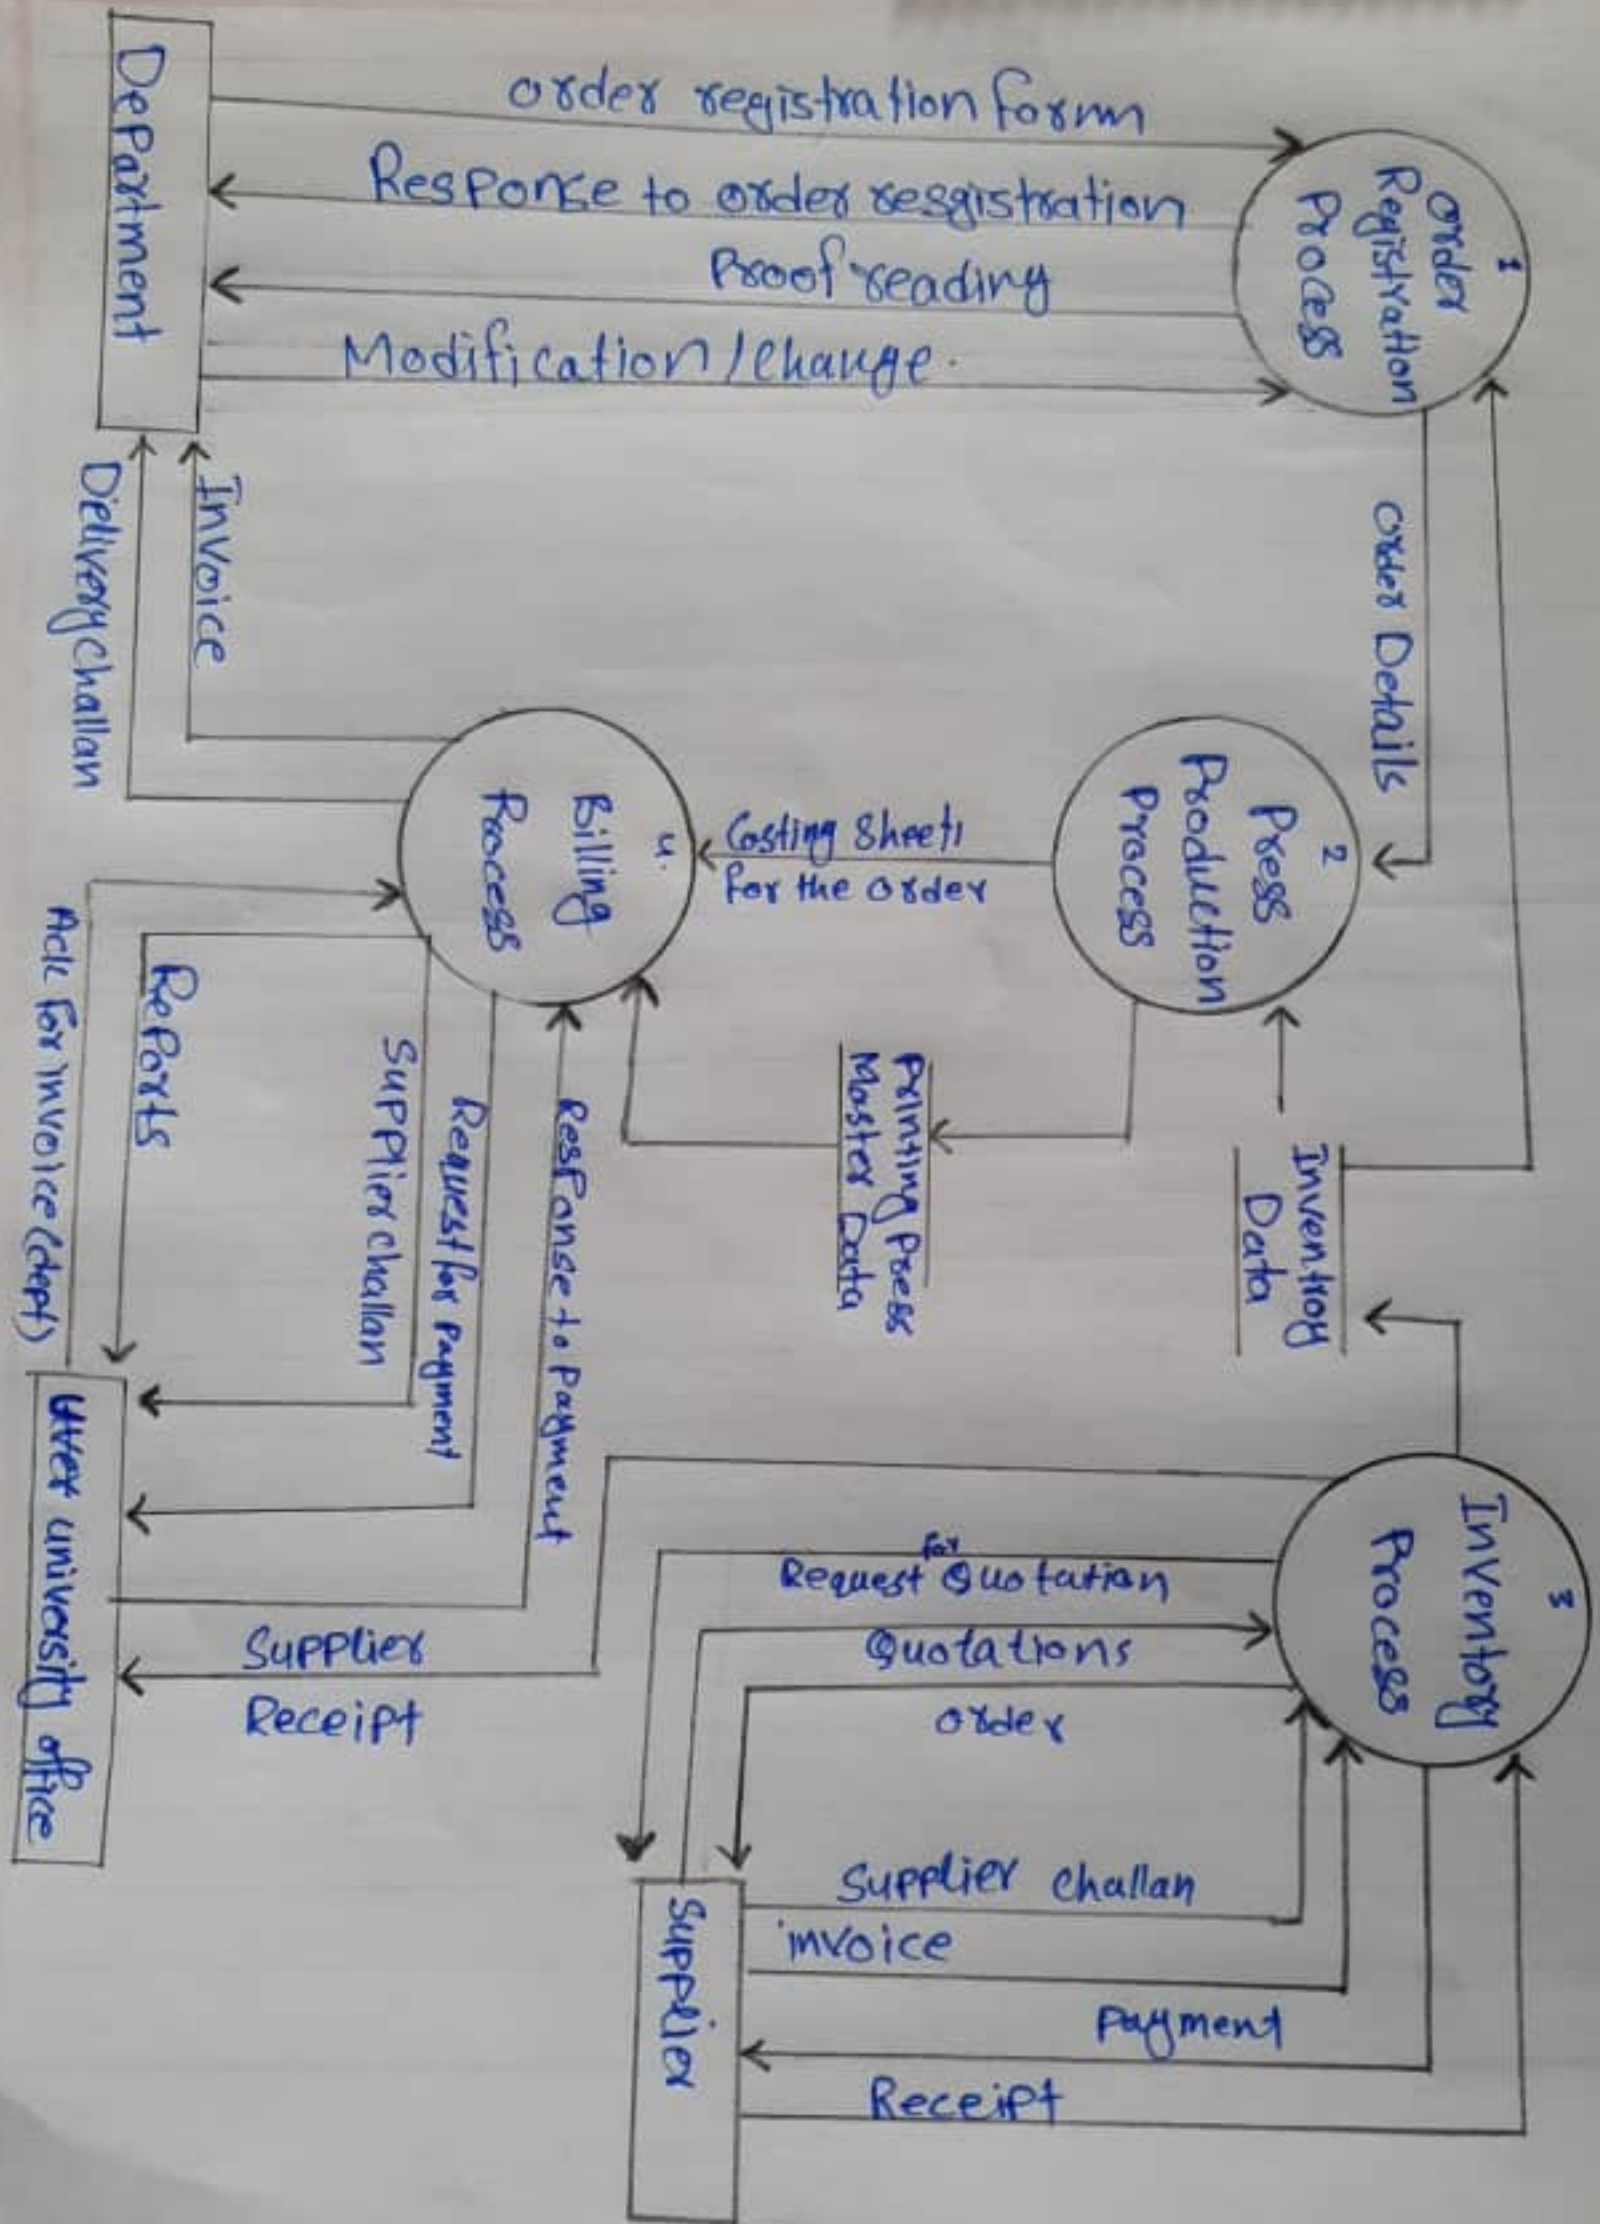 Department
order registration form
Response to order resgistration
Proof reading
Modification/change.
1
order
Registration
Process
order Details
Invoice
Delivery challan
2
Press
Production
Process
Costing Sheets
for the order
4.
Billing
Process
Inventroy
Data
Printing Press
Master Data
Response to Payment
Request for payment
Supplier challan
Reports
Ack for invoice (dept)
university office
Supplier
Receipt
3
Inventory
Process
Request for Quotation
Quotations
order
Supplier challan
invoice
Payment
Receipt
Supplier